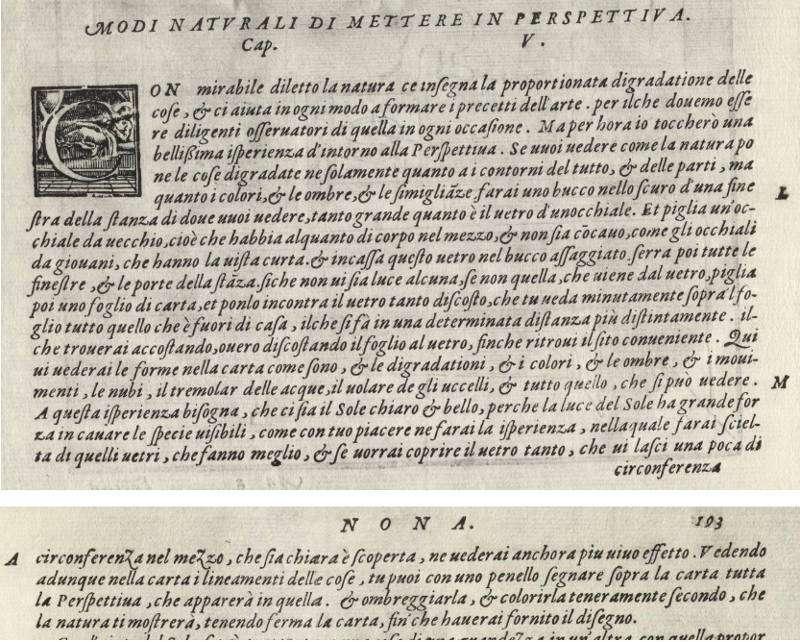 MODI NATVRALI DI METTERE IN PERSPETTIVA.
Cap. V.
CON mirabile diletto la natura ce insegna la proportionata digradatione delle
cose, & ci aiuta in ogni modo a formare i precetti dell'arte. per ilche douemo esse
re diligenti osseruatori di quella in ogni occasione. Ma per hora io toccherò una
bellißima isperienza d'intorno alla Perspettiua. Se uuoi uedere come la natura po
ne le cose digradate ne solamente quanto a i contorni del tutto, & delle parti, ma
quanto i colori, & le ombre, & le simigliāze farai uno bucco nello scuro d'una fine
L
stra della stanza di doue uuoi uedere, tanto grande quanto è il uetro d'unocchiale. Et piglia un'oc-
chiale da uecchio, cioè che habbia alquanto di corpo nel mezzo, & non sia cōcauo, come gli occhiali
da giouani, che hanno la uista curta. & incassa questo uetro nel bucco assaggiato. serra poi tutte le
finestre, & le porte della stāza. siche non ui sia luce alcuna, se non quella, che uiene dal uetro, piglia
poi uno foglio di carta, et ponlo incontra il uetro tanto discosto, che tu ueda minutamente sopra'l fo-
glio tutto quello che è fuori di casa, ilche si fà in una determinata distanza più distintamente. il-
che trouerai accostando, ouero discostando il foglio al uetro, finche ritroui il sito conueniente. Qui
ui uederai le forme nella carta come sono, & le digradationi, & i colori, & le ombre, & i moui-
menti, le nubi, il tremolar delle acque, il uolare de gli uccelli, & tutto quello, che si può uedere.
M
A questa isperienza bisogna, che ci sia il Sole chiaro & bello, perche la luce del Sole ha grande for
za in cauare le specie uisibili, come con tuo piacere ne farai la isperienza, nella quale farai sciel-
ta di quelli uetri, che fanno meglio, & se uorrai coprire il uetro tanto, che ui lasci una poca di
circonferenza
NONA. 193
A
circonferenza nel mezzo, che sia chiara è scoperta, ne uederai anchora piu uiuo effetto. Vedendo
adunque nella carta i lineamenti delle cose, tu puoi con uno penello segnare sopra la carta tutta
la Perspettiua, che apparerà in quella. & ombreggiarla, & colorirla teneramente secondo, che
la natura ti mostrerà, tenendo ferma la carta, fin'che hauerai fornito il disegno.